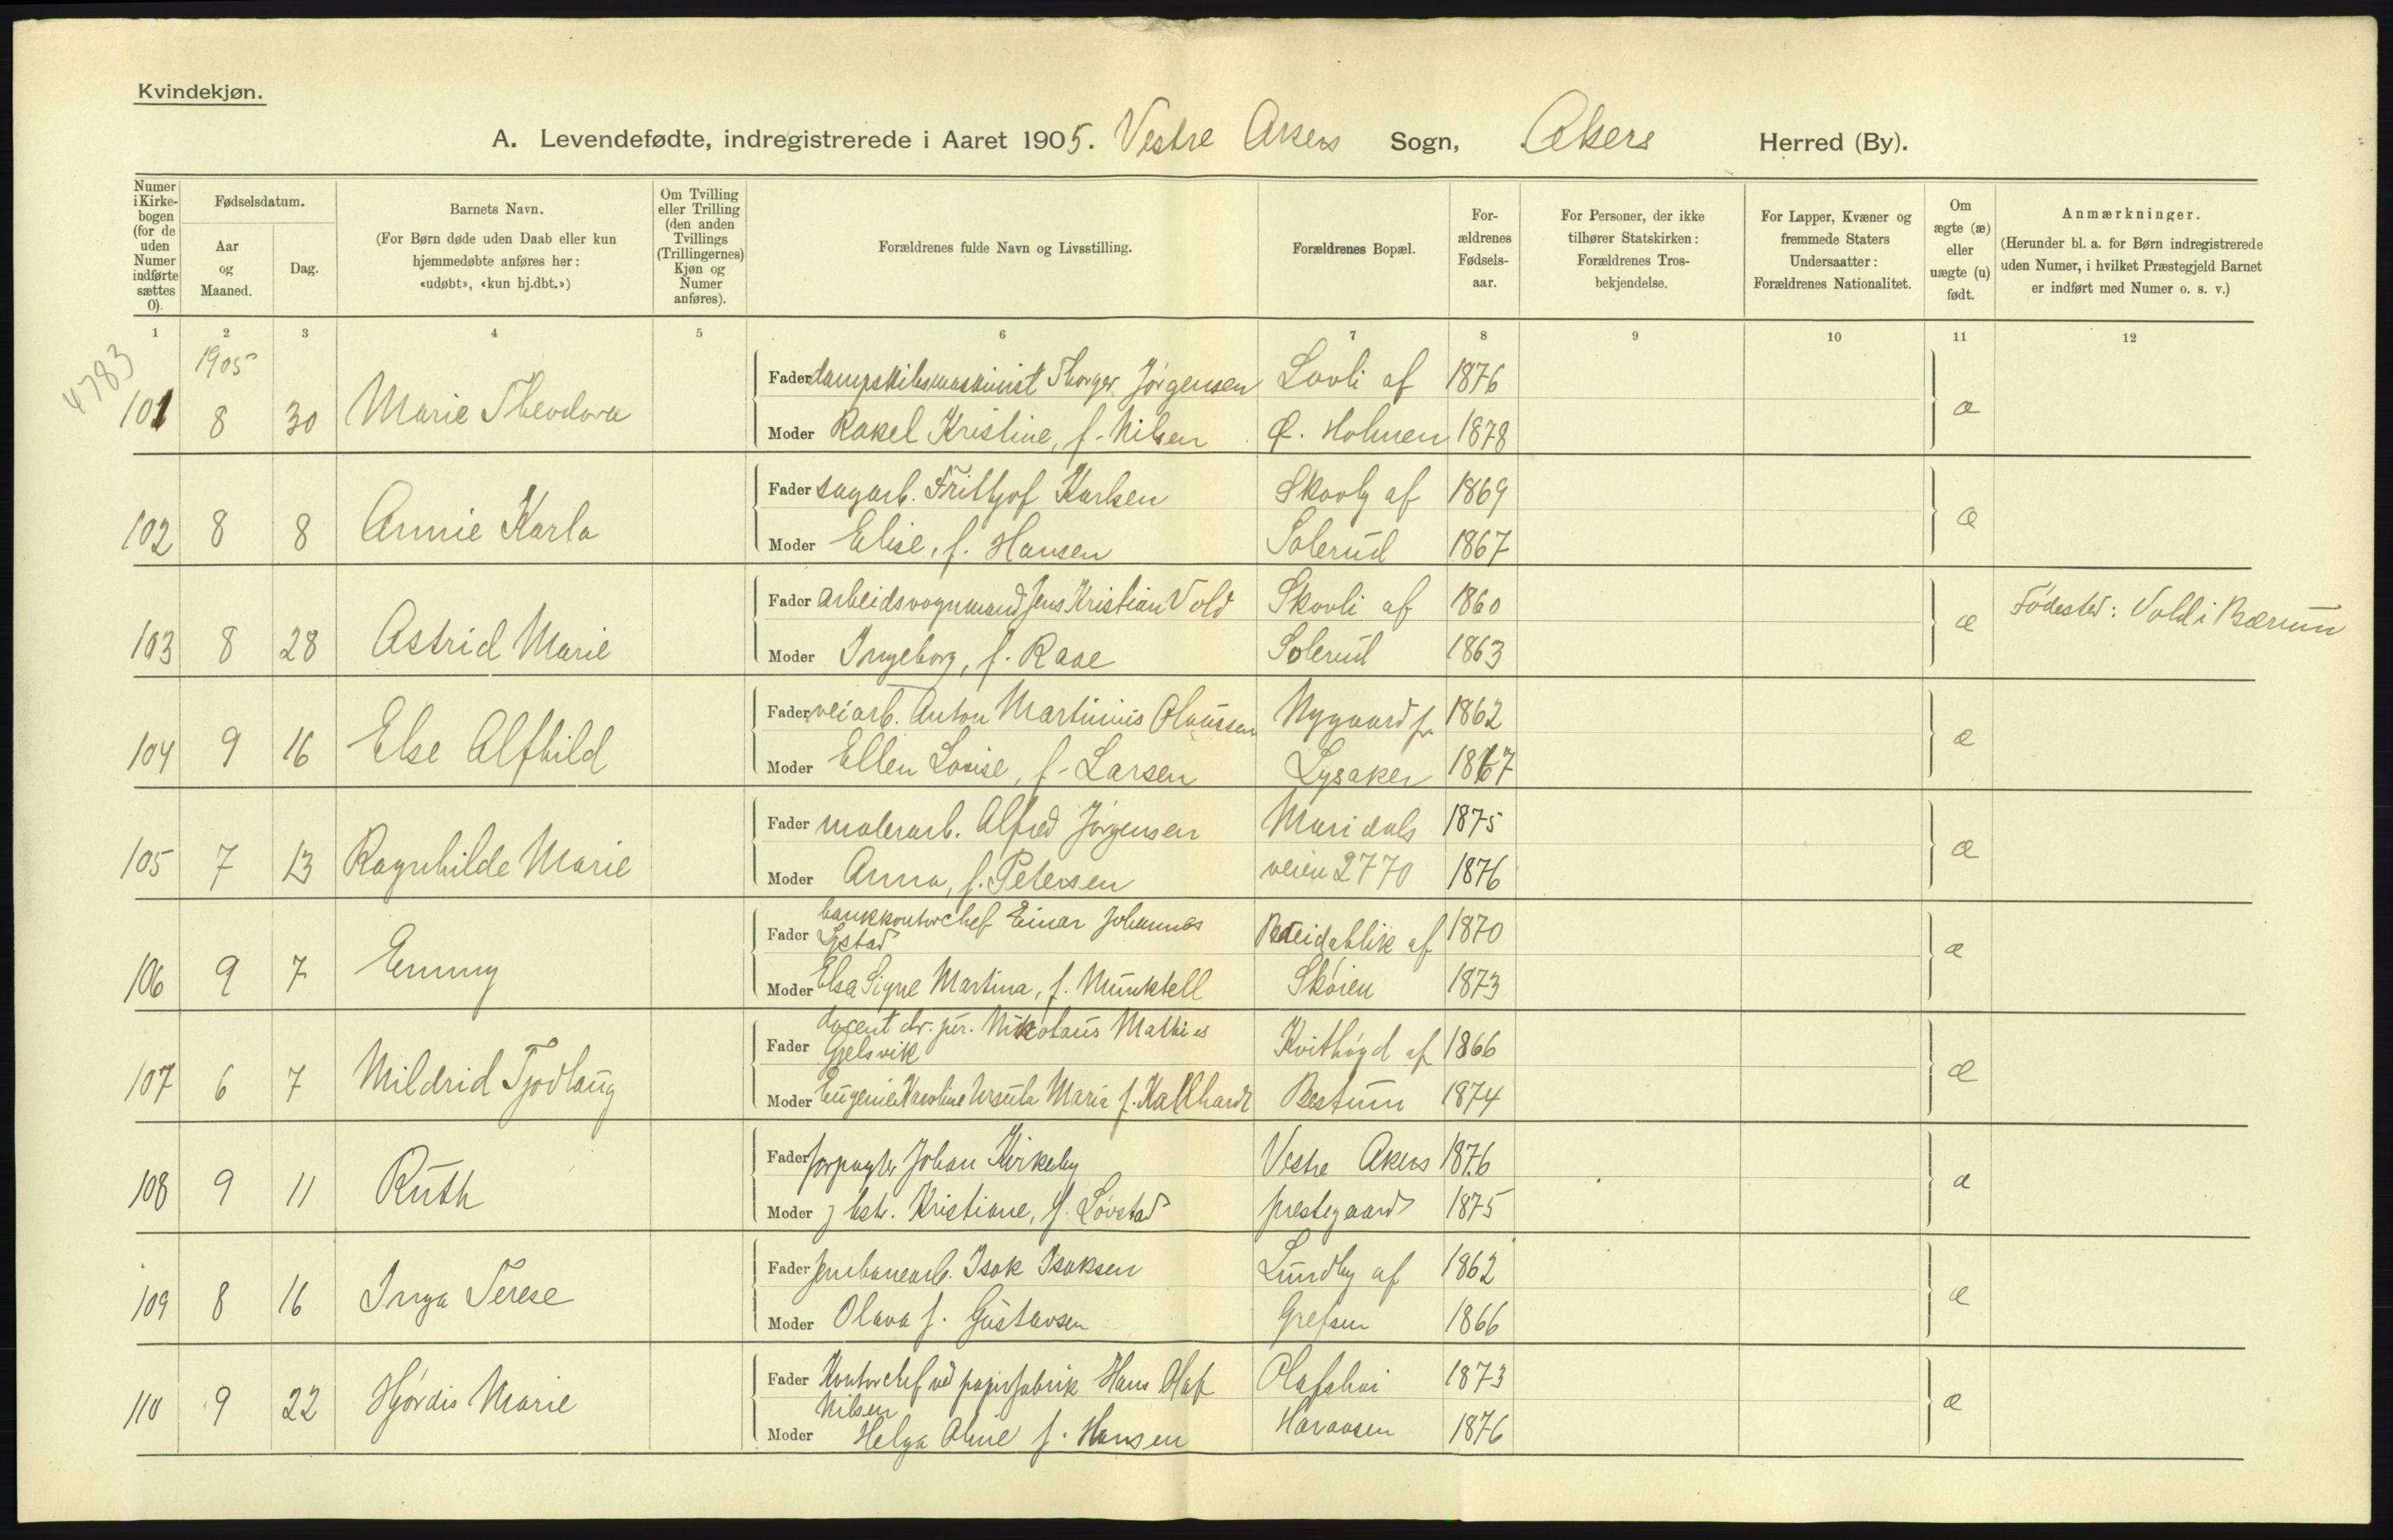 Kvindekjøn.
A. Levendefødte, indregistrerede i Aaret 1905. Vestre Akers Sogn, Akers Herred (By).
Numer i Kirkebogen (for de uden Numer indførte sættes 0).
Fødselsdatum.
Aar og Maaned.
Dag.
Barnets Navn.
(For Børn døde uden Daab eller kun hjemmedøbte anføres her: «udøbt», «kun hj.dbt.»)
Om Tvilling eller Trilling (den anden Tvillings (Trillingernes) Kjøn og Numer anføres).
Forældrenes fulde Navn og Livsstilling.
Forældrenes Bopæl.
Forældrenes Fødselsaar.
For Personer, der ikke tilhører Statskirken: Forældrenes Trosbekjendelse.
For Lapper, Kvæner og fremmede Staters Undersaatter: Forældrenes Nationalitet.
Om ægte (æ) eller uægte (u) født.
Anmærkninger.
(Herunder bl. a. for Børn indregistrerede uden Numer, i hvilket Præstegjeld Barnet er indført med Numer o. s. v.)
1 2 3 4 5 6 7 8 9 10 11 12
4783
1905
Fader dampskibsmaskinist Thorger Jørgensen Lovli af 1876
101 8 30 Marie Theodora æ
Moder Rakel Kristine, f. Nilsen Ø. Holmen 1878
Fader sagarb. Frithjof Karlsen Skovly af 1869
102 8 8 Annie Karla æ
Moder Elise, f. Hansen Solerud 1867
Fader arbeidsvognmand Jens Kristian Vold Skovli af 1860
103 8 28 Astrid Marie æ Fødested: Vold i Bærum
Moder Ingeborg, f. Raae Solerud 1863
Fader veiarb. Anton Martinius Olaussen Nygaard pr. 1862
104 9 16 Else Alfhild æ
Moder Ellen Lovise, f. Larsen Lysaker 1867
Fader malerarb. Alfred Jørgensen Maridals 1875
105 7 13 Ragnhilde Marie æ
Moder Anna, f. Petersen veien 2770 1876
Fader bankkontorchef Einar Johannes
Systad Breidablik af 1870
106 9 7 Emmy æ
Moder Elsa Signe Martina, f. Munktell Skøien 1873
Fader docent dr. jur. Nikolaus Mathias
Gjelsvik Kvithøgd af 1866
107 6 7 Mildrid Tjodlaug æ
Moder Eugenie Karoline Ursula Maria f. Kallhardt Bestum 1874
Fader forpagter Johan Kirkeby Vestre Akers 1876
108 9 11 Ruth æ
Moder g hstr. Kristiane, f. Løvstad prestegaard 1875
Fader jernbanearb. Isak Isaksen Lundby af 1862
109 8 16 Inga Terese æ
Moder Olava f. Gustavsen Grefsen 1866
Fader Kontorchef ved papirfabrik Hans Olaf
Nilsen Olafshøi 1873
110 9 22 Hjørdis Marie æ
Moder Helga Oline f. Hansen Havaasen 1876